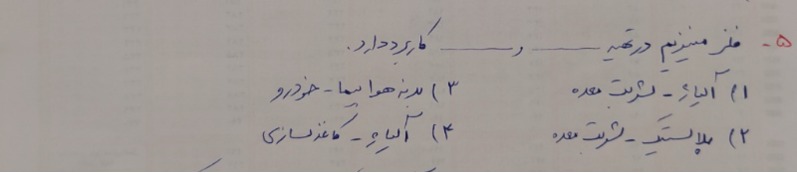 ۵- فلز منیزیم در تهیه ــــــ و ــــــ کاربرد دارد.
۱) آلیاژ - شربت معده ۳) بدنه هواپیما - خودرو
۲) پلاستیک - شربت معده ۴) آلیاژ - کاغذسازی